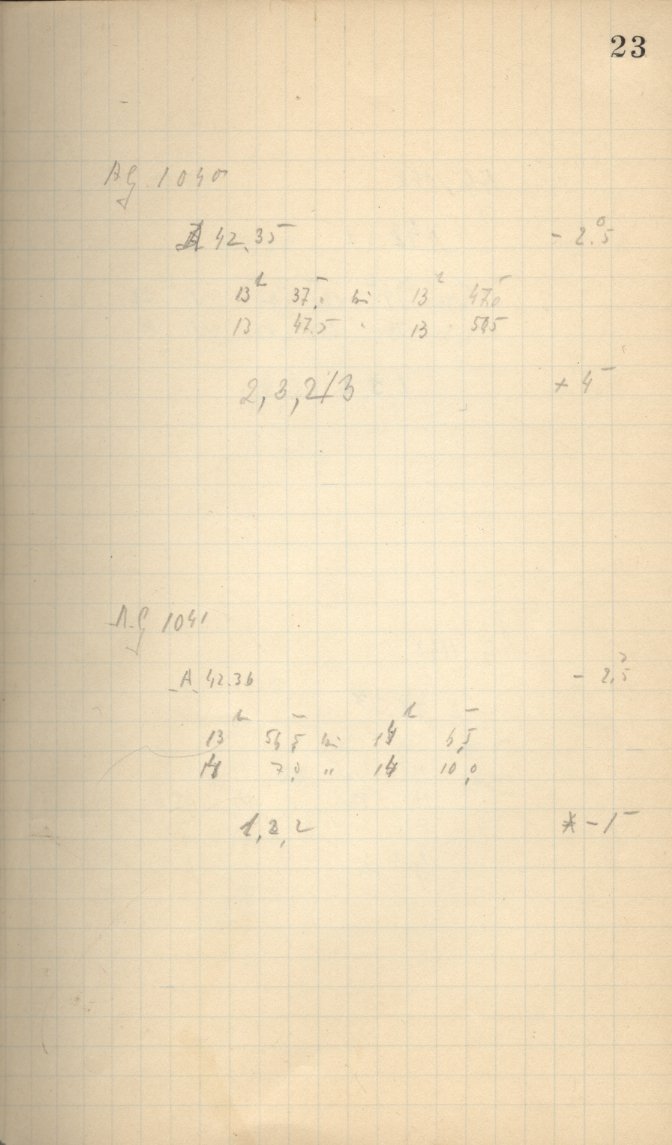 23
AG 1040
A 42.35 - 2.°5
13h 37.m0 bis 13h 47.m0
13 47.5 " 13
2, 3, 2/3 + 4m
AG 1041
A 42.36 - 2.°5
13h 5 m5 bis 14h 6.m5
14 7.0 " 14 10.0
1, 2, 2 - 1m